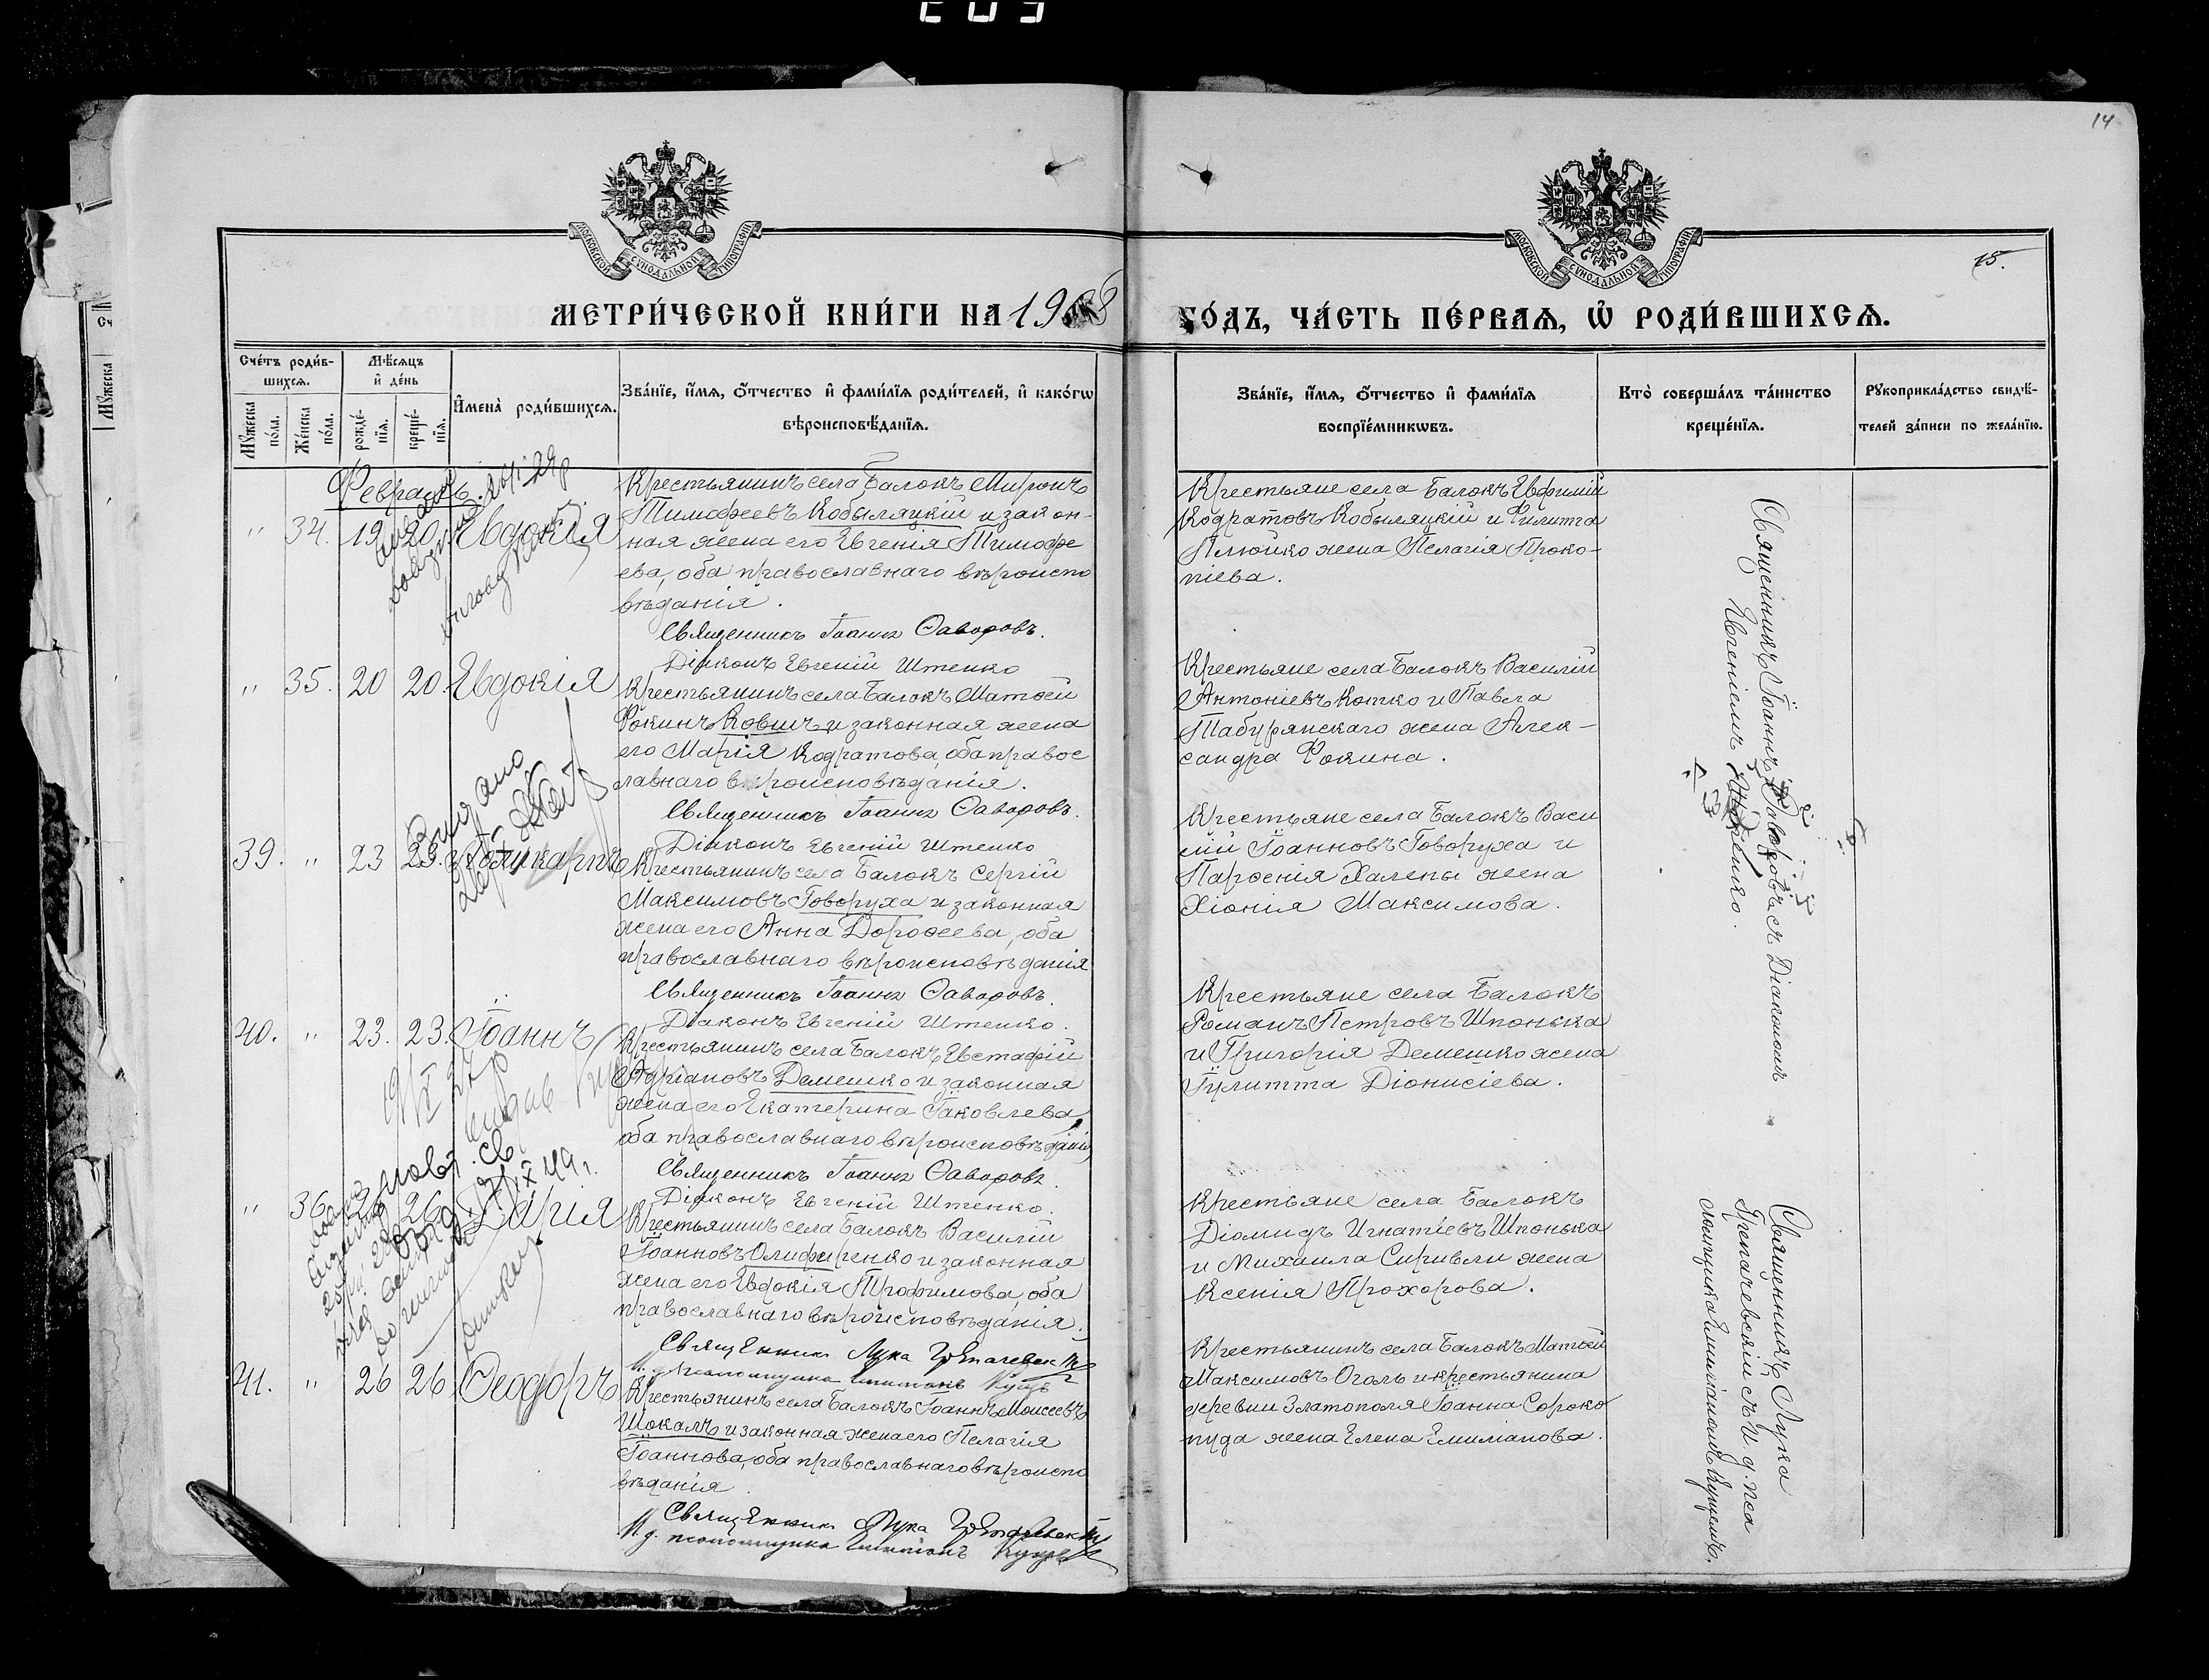 203
14
МОСКОВСКОЙ СѴНОДАЛЬНОЙ ТИПОГРАФІИ
МОСКОВСКОЙ СѴНОДАЛЬНОЙ ТИПОГРАФІИ
15.
МЕТРИ́ЧЕСКОЙ КНИ́ГИ НА 1908 ГО́ДЪ, ЧА́СТЬ ПЕ́РВАѦ, Ѡ РОДИ́ВШИХСѦ.
Сче́тъ роди́в-
шихсѧ.
Мꙋ́жеска
по́ла.
Же́нска
по́ла.
Мѣ́сѧцъ
и҆ де́нь
рожде́-
нїѧ.
креще́-
нїѧ.
И҆мена̀ роди́вшихсѧ.
Зва́нїе, и҆́мѧ, ѻ҆́тчество и҆ фами́лїѧ роди́телей, и҆ како́гѡ
вѣроисповѣ́данїѧ.
Зва́нїе, и҆́мѧ, ѻ҆́тчество и҆ фами́лїѧ
воспрїе́мникѡвъ.
Кто̀ соверша́лъ та́инство
креще́нїѧ.
Рꙋкоприкла́дство свидѣ́-
телей за́писи по жела́нїю.
Февраль.
" 34. 19 20. Евдокія
Крестьянинъ села Балокъ Миронъ
Тимофеевъ Кобыляцкій и закон-
ная жена его Евгенія Тимофе
ева, оба православнаго вѣроиспо
вѣданія.
Священникъ Іоаннъ Ѳаворовъ.
Діаконъ Евгеній Штепко
Крестьяне села Балокъ Евфимій
Кодратовъ Кобыляцкій и Филиппа
Плюйко жена Пелагія Проко-
піева.
" 35. 20 20. Евдокія
Крестьянинъ села Балокъ Матѳей
Фокинъ Ковшъ и законная жена
его Марія Кодратова, оба правос
лавнаго вѣроисповѣданія.
Священникъ Іоаннъ Ѳаворовъ.
Діаконъ Евгеній Штепко
Крестьяне села Балокъ Василій
Антоніевъ Котко и Павла
Табурянскаго жена Алек-
сандра Фокина.
39. " 23 23. Поликарпъ
Крестьянинъ села Балокъ Сергій
Максимовъ Говоруха и законная
жена его Анна Дороѳеева, оба
православнаго вѣроисповѣданія
Священникъ Іоаннъ Ѳаворовъ.
Діаконъ Евгеній Штепко.
Крестьяне села Балокъ Васи
лій Іоанновъ Говоруха и
Парѳенія Халепы жена
Хіонія Максимова.
40. " 23. 23. Іоаннъ
Крестьянинъ села Балокъ Евстафій
Адріановъ Демешко и законная
жена его Екатерина Іаковлева,
оба православнаго вѣроисповѣданія
Священникъ Іоаннъ Ѳаворовъ.
Діаконъ Евгеній Штепко.
Крестьяне села Балокъ
Романъ Петровъ Шпонька
и Григорія Демешко жена
Іулитта Діонисіева.
Священникъ Іоаннъ Ѳаворовъ съ Діакономъ
Евгеніемъ Штепко.
" 36. 26. Дарія
Крестьянинъ села Балокъ Василій
Іоанновъ Олифиренко и законная
жена его Евдокія Трофимова, оба
православнаго вѣроисповѣданія.
Священникъ Лука
И. д. псаломщика Емиліанъ Кущъ
Крестьяне села Балокъ
Діомидъ Игнатіевъ Шпонька
и Михаила жена
Ксенія Прохорова.
41. " 26 26 Ѳеодоръ
Крестьянинъ села Балокъ Іоаннъ Моисеевъ
Шокалъ и законная жена его Пелагія
Іоаннова, оба православнаго вѣроиспо
вѣданія.
Священникъ Лука
И. д. псаломщика Емиліанъ Кущъ
Крестьянинъ села Балокъ Матѳей
Максимовъ Оголь и крестьянина
деревни Златополя Іоанна Сороко
пуда жена Елена Емиліанова.
Священникъ Лука
съ И. д. пса
ломщика Емиліаномъ Кущемъ.